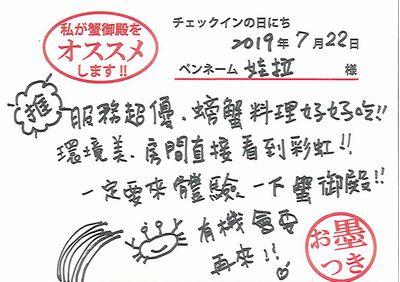 私が蟹御殿を
オススメ
します!!
チェックインの日にち
2019年7月22日
ペンネーム 娃拉 様
推
服務超優、螃蟹料理好好吃!!
環境美、房間直接看到彩虹!!
一定要來體驗一下蟹御殿!!
有機會要
再來!!
お墨
つき